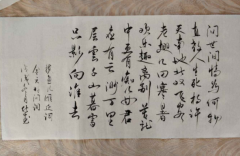 问世间情为何物
直教人生死相许
天南地北双飞客
老翅几回寒暑
欢乐趣离别苦就
中更有痴儿女君
应有语渺万里
层云千山暮雪
只影向谁去